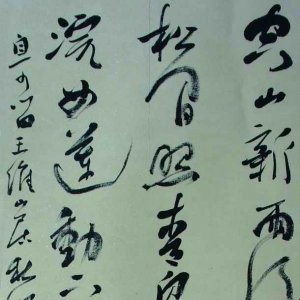 空山新雨後
松間照
浣女蓮動下
王維山居秋